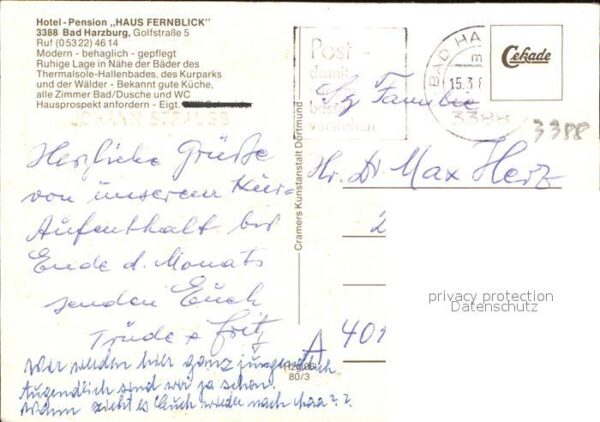 Hotel - Pension „HAUS FERNBLICK"
3388 Bad Harzburg, Golfstraße 5
Ruf (05322) 4614
Modern - behaglich - gepflegt
Ruhige Lage in Nähe der Bäder des
Thermalsole-Hallenbades, des Kurparks
und der Wälder - Bekannt gute Küche,
alle Zimmer Bad/Dusche und WC
Hausprospekt anfordern - Eigt.
JOHANN STRAUSS
Herzliche Grüße
von unserem Kur-
Aufenthalt bis
Ende d. Monats
senden Euch
Trude + Fritz
Wir werden hier ganz jugendlich
Augendlich sind wir ja schon.
Wann zieht es Euch wieder nach
Cramers Kunstanstalt Dortmund
80/3
Post-
damit
verstehen
BAD HA
15.3.
3388
Cekade
3388
Sg Familie
Hr. Dr Max Herz
2
A 401
privacy protection
Datenschutz